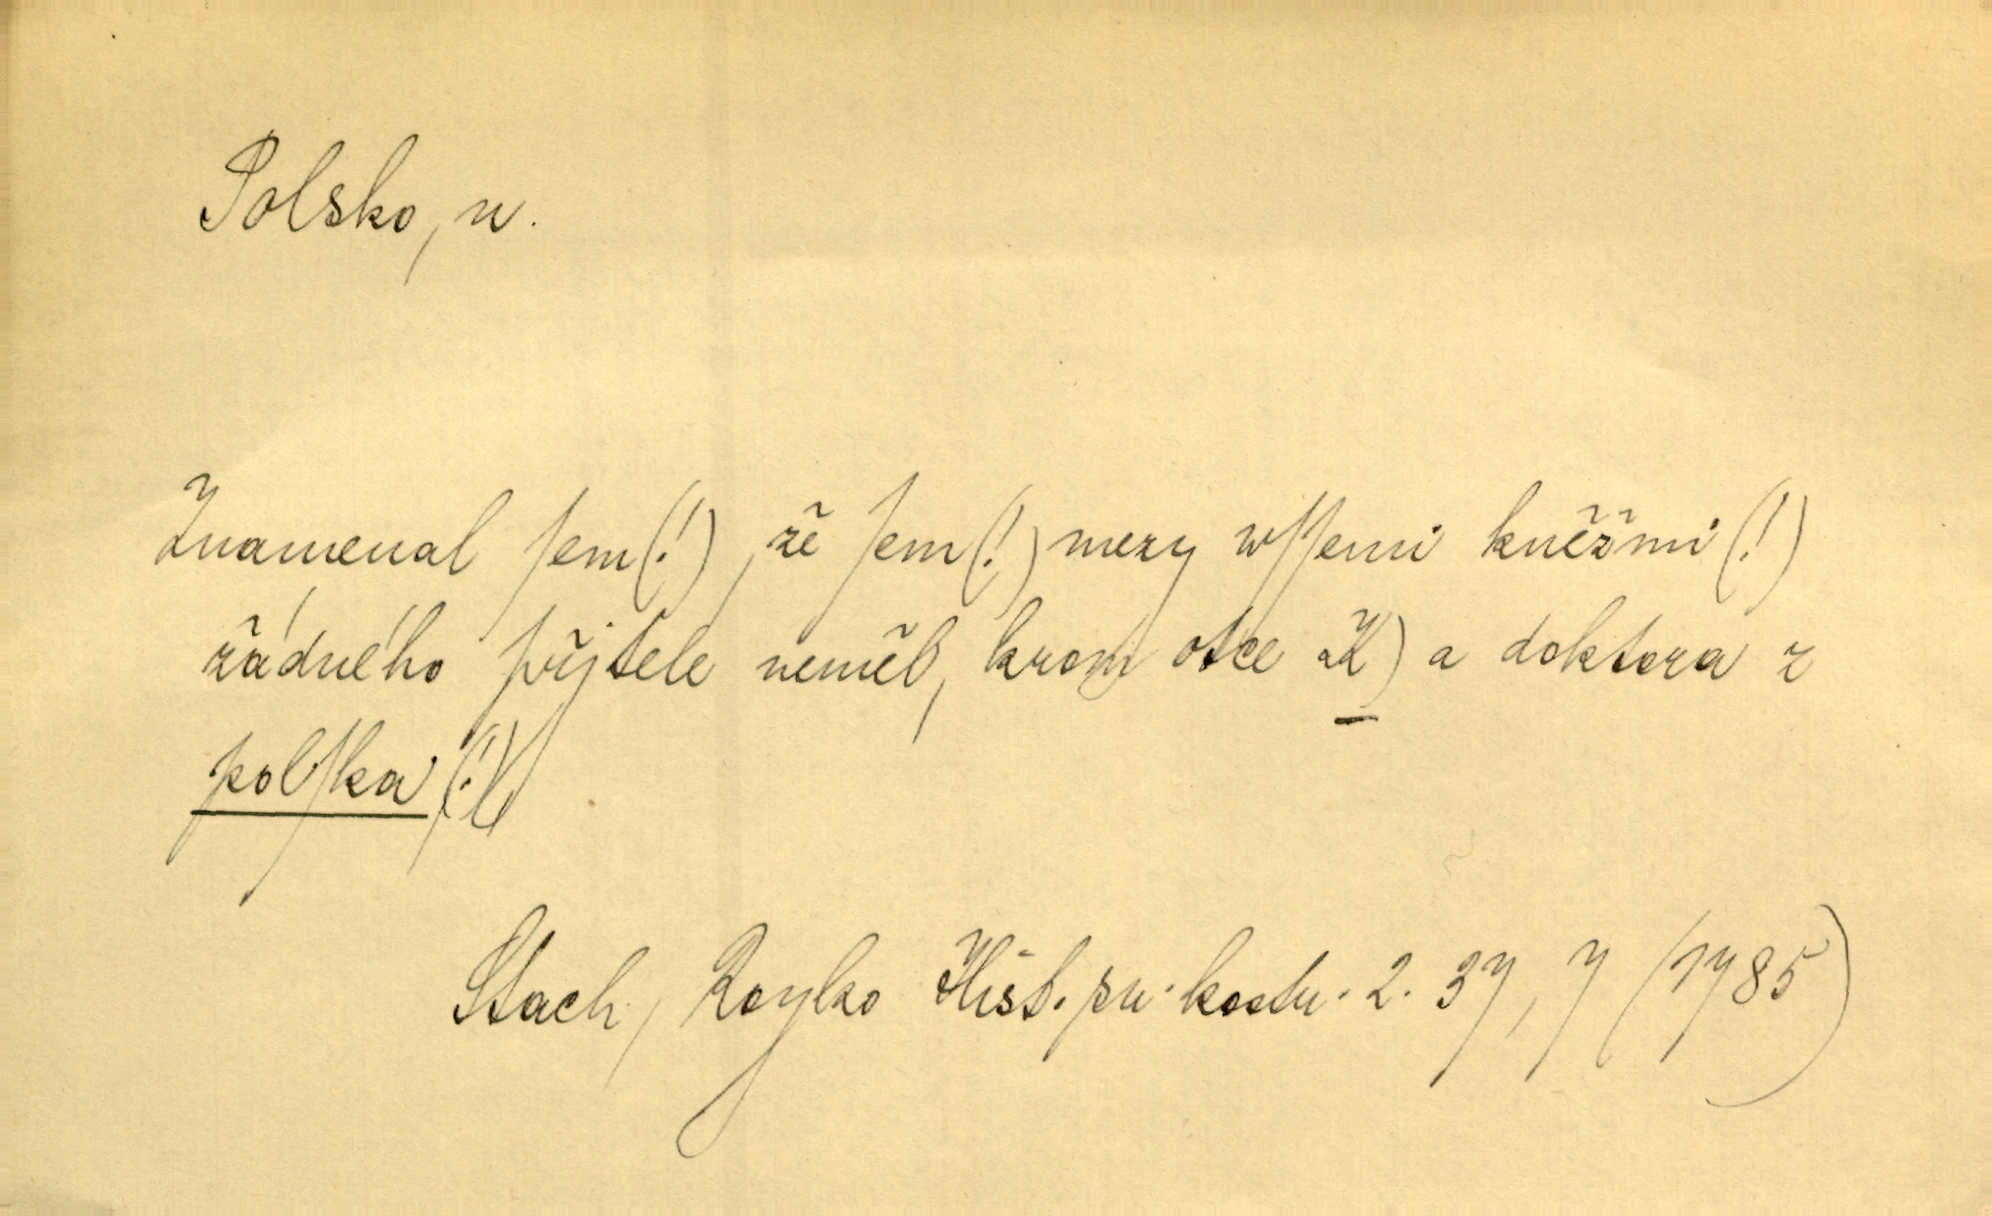 Polsko, n.
Znamenal ſem(!), že ſem(!) mezy wſſemi kněžmi(!)
žádného přjtele neměl, krom otce K) a doktora z
polſka(!)
Stach, Royko Hist. sn. kostn. 2. 37, 7 (1785)